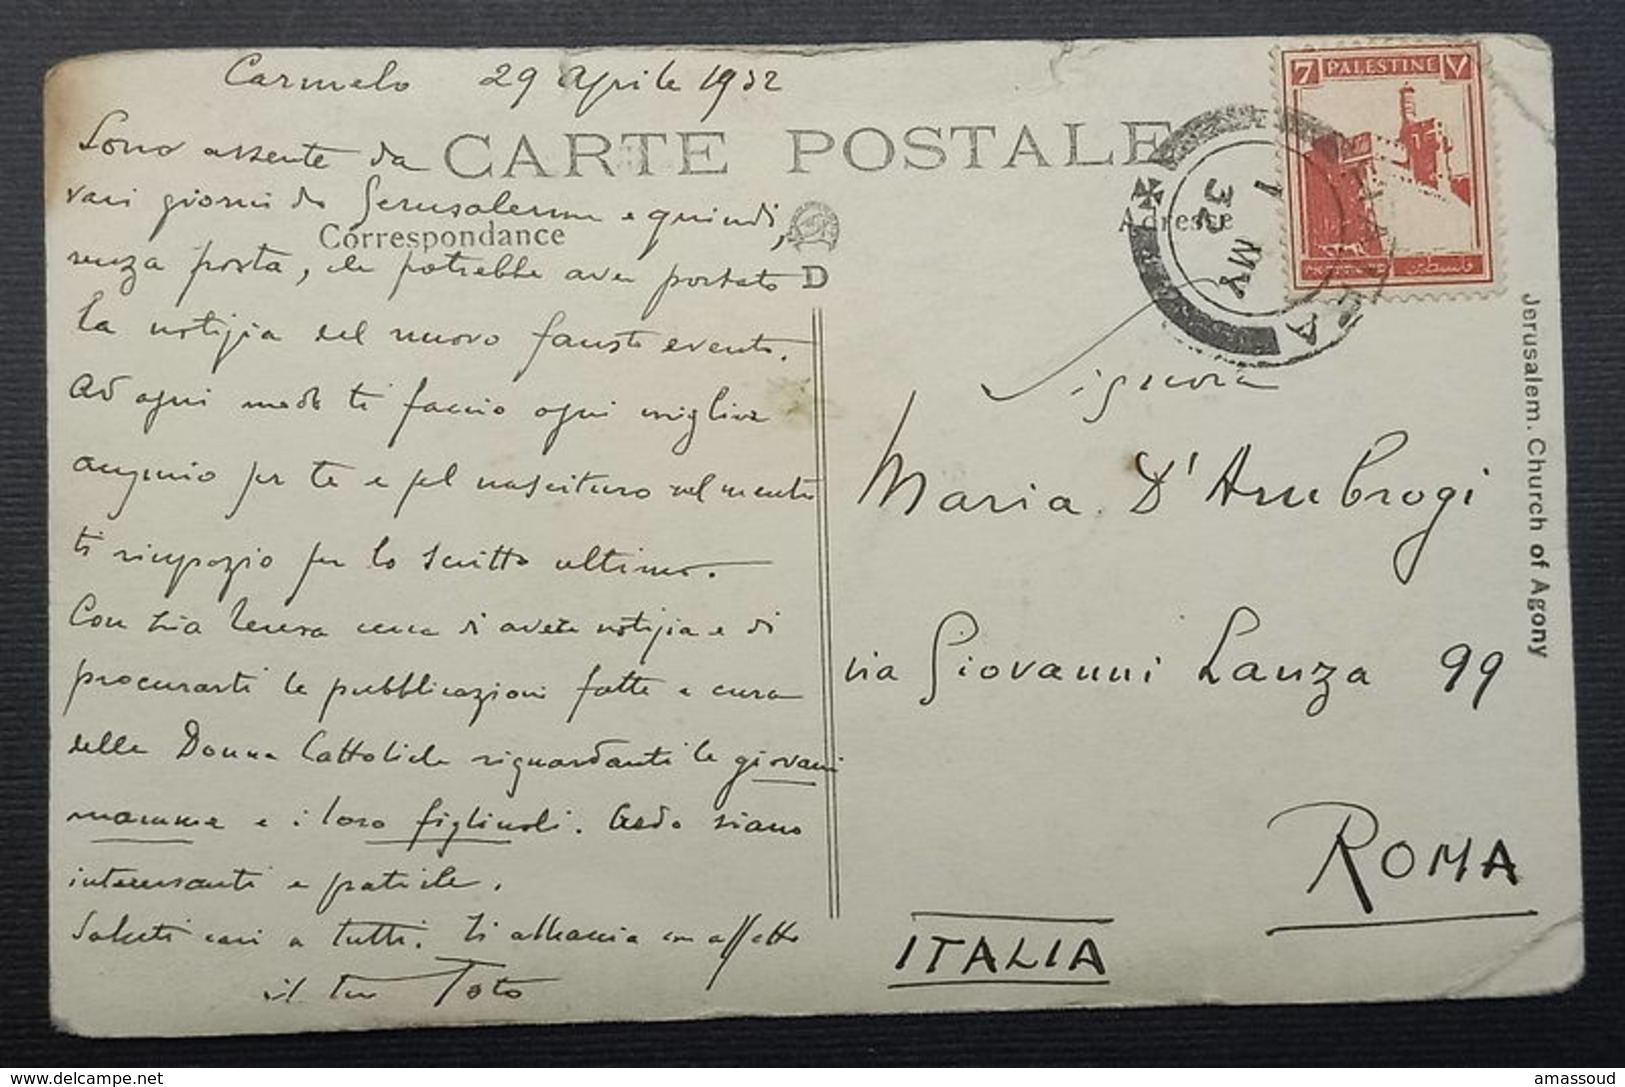 Carmelo 29 aprile 1932
CARTE POSTALE
Correspondance
Adresse
D
Sono assente da
vari giorni da Gerusalemme e quindi,
senza posta, che potrebbe aver portato
la notizia del nuovo fausto evento.
Ad ogni modo ti faccio ogni miglior
augurio per te e pel nascituro nel mentre
ti ringrazio per lo scritto ultimo.
Con zia Teresa cerca di avere notizia e di
procurarti le pubblicazioni fatte a cura
delle Donne Cattoliche riguardanti le giovani
mamme e i loro figliuoli. Credo siano
interessanti e pratiche.
Saluti cari a tutti. Ti abbraccia con affetto
il tuo Toto
7 PALESTINE V
فلسطين
1 MY
32
Signora
Maria D'Ambrogi
via Giovanni Lanza 99
ROMA
ITALIA
Jerusalem. Church of Agony
www.delcampe.net
amassoud